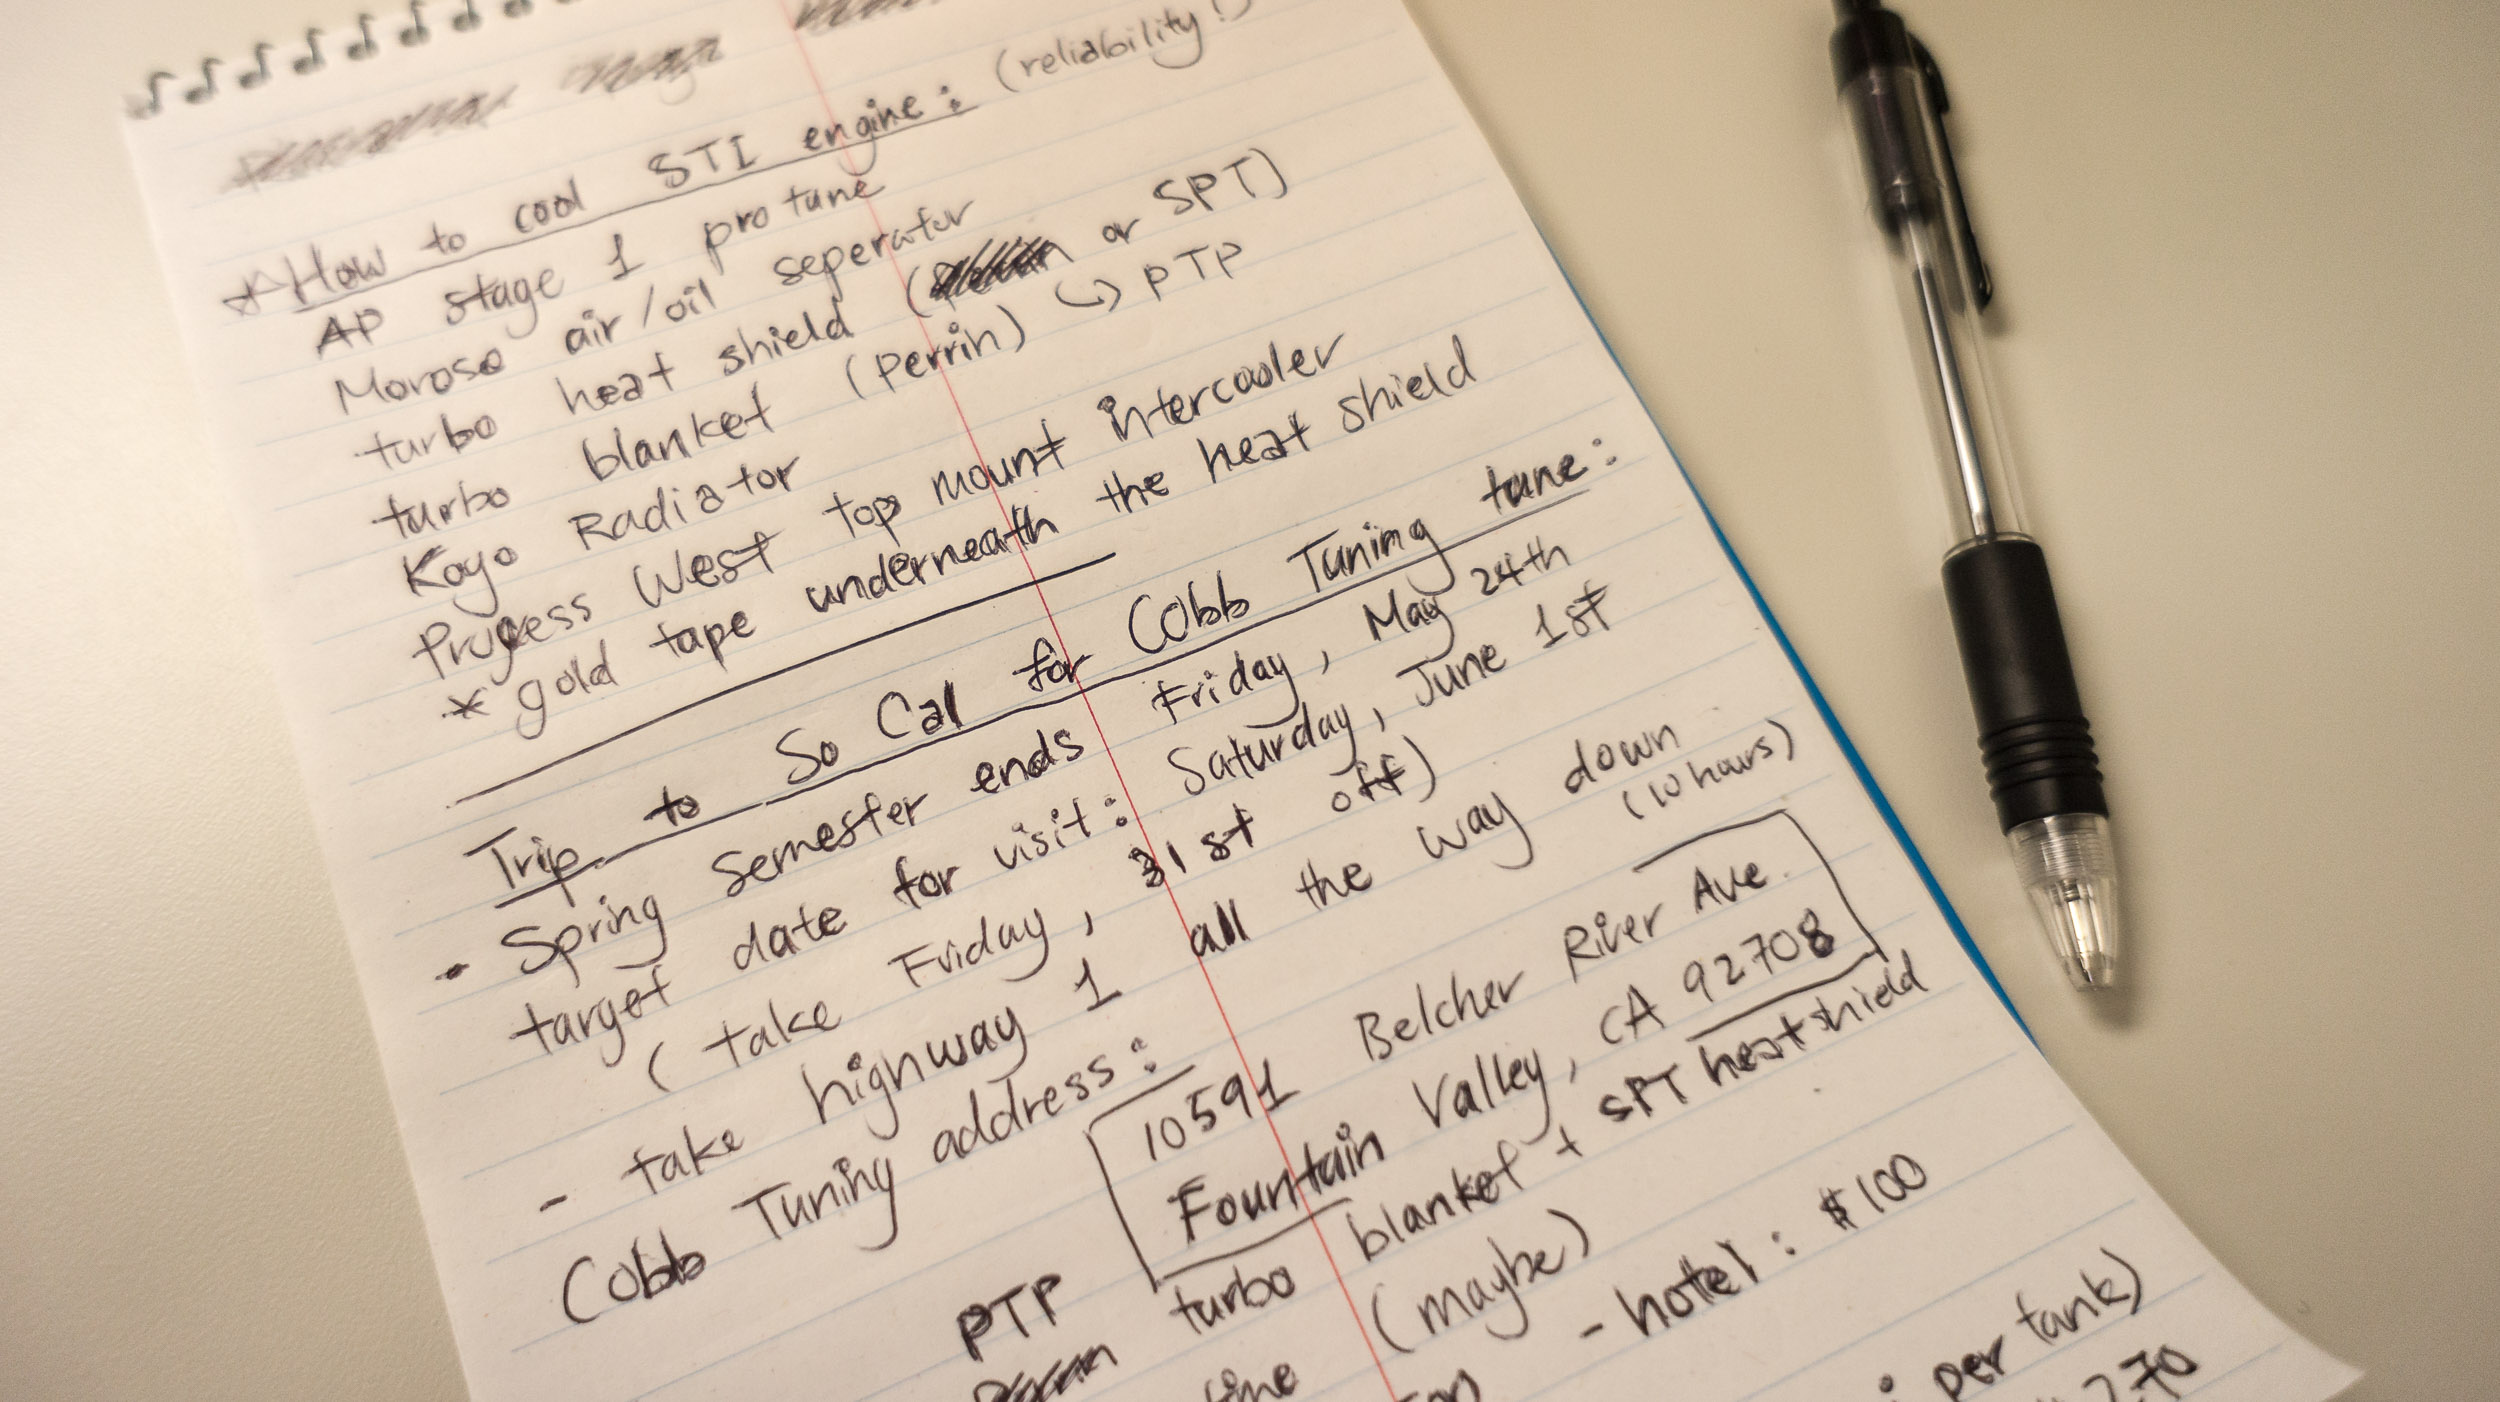 * How to cool STI engine: (reliability!)
AP stage 1 protune
Moroso air/oil seperator
turbo heat shield ( or SPT)
turbo blanket (Perrin) ↪ PTP
Koyo Radiator
Process West top mount intercooler
* gold tape underneath the heat shield
Trip to So Cal for Cobb Tuning tune:
- Spring semester ends Friday, May 24th
target date for visit: Saturday, June 1st
(take Friday, 31st off)
- take highway 1 all the way down
(10 hours)
Cobb Tuning address: 10591 Belcher River Ave.
Fountain Valley, CA 92708
PTP turbo blanket + SPT heat shield
(maybe)
- hotel: $100
per tank)
270